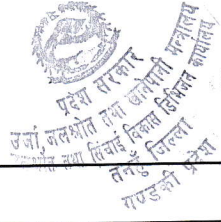 प्रदेश सरकार
उर्जा, जलश्रोत तथा खानेपानी मन्त्रालय
जलश्रोत तथा सिंचाई विकास डिभिजन कार्यालय
तनहुँ जिल्ला
गण्डकी प्रदेश